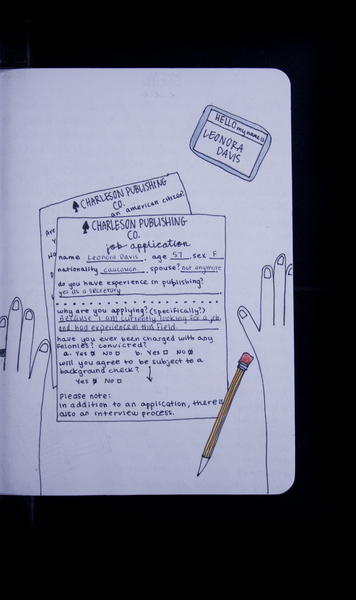 HELLO my name is
LEONORA
DAVIS
CHARLESON PUBLISHING
CO.
an american citizen?
CHARLESON PUBLISHING
CO.
job application
name Leonora Davis. age 57. sex F
nationality caucasian. spouse? not anymore
do you have experience in publishing?
yes as a secretary
why are you applying? (specifically!)
Because I am currently looking for a job
and had experience in this field.
have you ever been charged with any
felonies? convicted?
a. Yes No b. Yes No
will you agree to be subject to a
background check?
Yes No
Please note:
in addition to an application, there is
also an interview process.